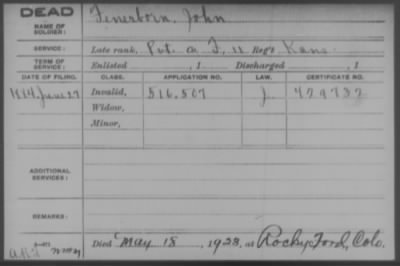 DEAD
NAME OF SOLDIER: Fenerborn, John
SERVICE: Late rank, Pvt. Co F, 11 Reg't Kans.
TERM OF SERVICE: Enlisted , 1 Discharged , 1
DATE OF FILING. CLASS. APPLICATION NO. LAW. CERTIFICATE NO.
1884, June 27 Invalid, 516,507 J 479732
Widow,
Minor,
ADDITIONAL SERVICES:
REMARKS:
Died May 18, 1928, at Rocky Ford, Colo.